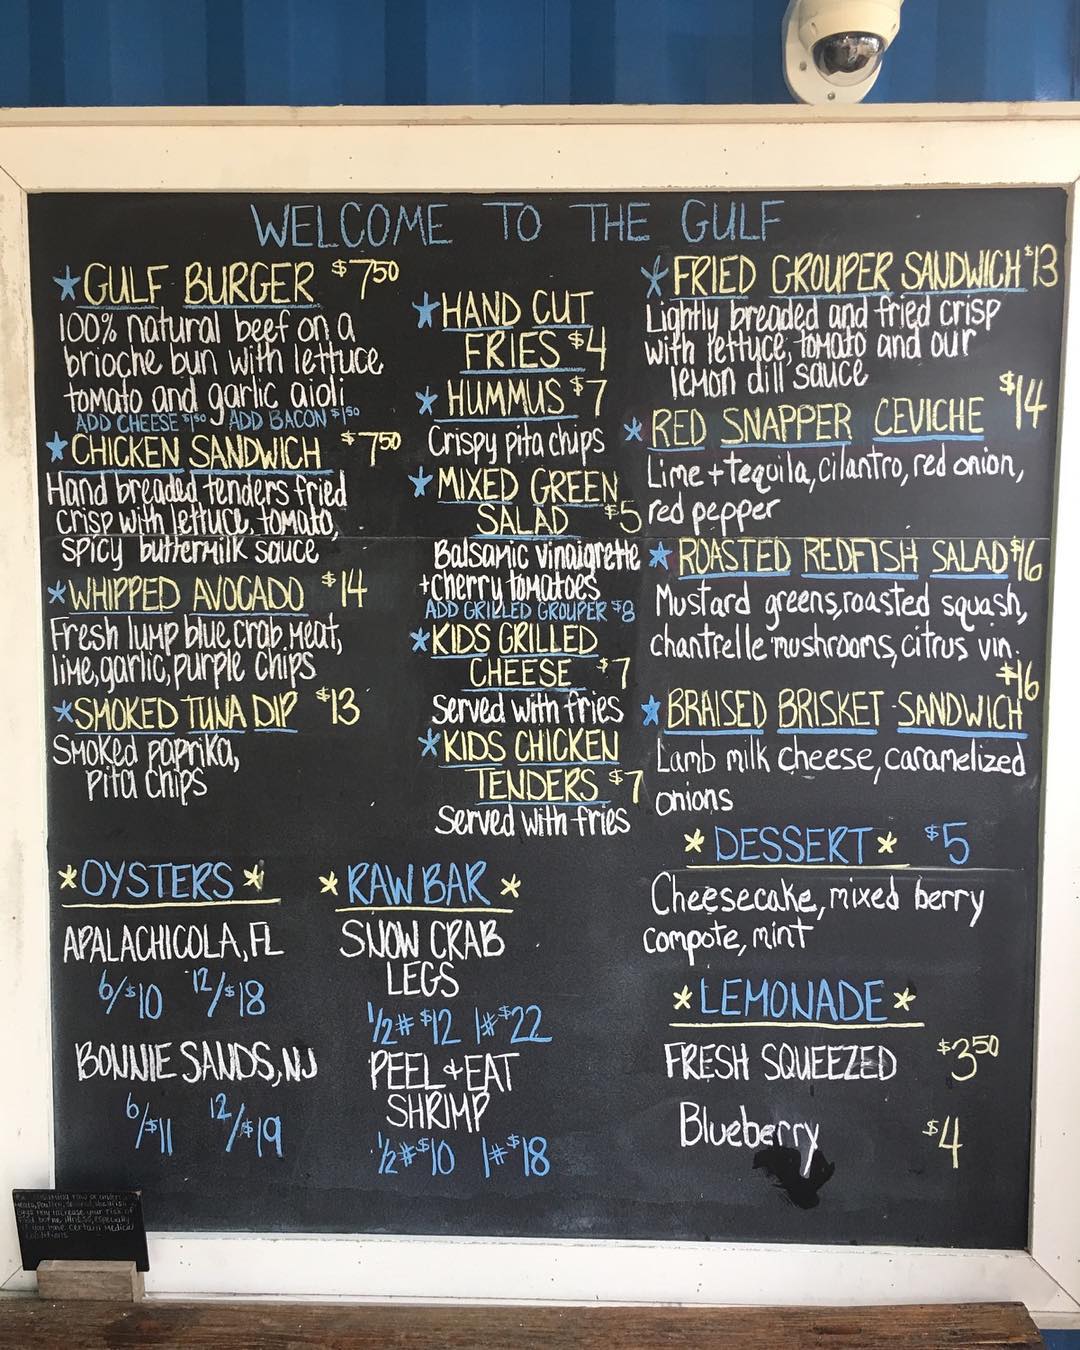 WELCOME TO THE GULF
*GULF BURGER $7⁵⁰
100% natural beef on a
brioche bun with lettuce
tomato and garlic aioli
ADD CHEESE $1⁵⁰ ADD BACON $1⁵⁰
*CHICKEN SANDWICH $7⁵⁰
Hand breaded tenders fried
crisp with lettuce, tomato,
spicy buttermilk sauce
*WHIPPED AVOCADO $14
Fresh lump blue crab meat,
lime, garlic, purple chips
*SMOKED TUNA DIP $13
Smoked paprika,
pita chips
*HAND CUT
FRIES $4
*HUMMUS $7
Crispy pita chips
*MIXED GREEN
SALAD $5
Balsamic vinaigrette
+cherry tomatoes
ADD GRILLED GROUPER $8
*KIDS GRILLED
CHEESE $7
Served with fries
*KIDS CHICKEN
TENDERS $7
Served with fries
*FRIED GROUPER SANDWICH $13
Lightly breaded and fried crisp
with lettuce, tomato and our
lemon dill sauce
*RED SNAPPER CEVICHE $14
Lime + tequila, cilantro, red onion,
red pepper
*ROASTED REDFISH SALAD $16
Mustard greens, roasted squash,
chantrelle mushrooms, citrus vin.
*BRAISED BRISKET SANDWICH $16
Lamb milk cheese, caramelized
onions
*OYSTERS*
APALACHICOLA, FL
6/$10 12/$18
BONNIE SANDS, NJ
6/$11 12/$19
*RAW BAR*
SNOW CRAB
LEGS
1/2# $12 1# $22
PEEL + EAT
SHRIMP
1/2# $10 1# $18
*DESSERT* $5
Cheesecake, mixed berry
compote, mint
*LEMONADE*
FRESH SQUEEZED $3⁵⁰
Blueberry $4
consuming raw or under
meats, poultry,
eggs may increase your risk of
food borne illness, especially
if you have certain medical
conditions